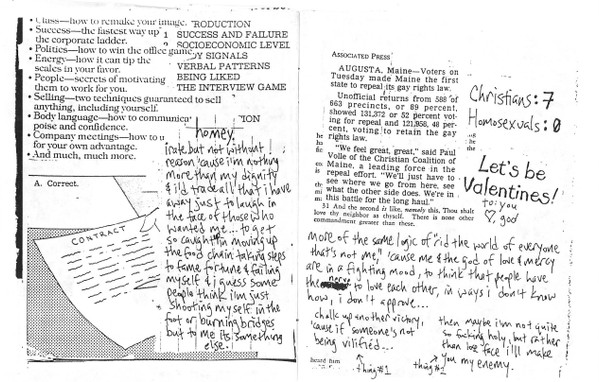 • Class—how to remake your image.
• Success—the fastest way up
the corporate ladder.
• Politics—how to win the office game.
• Energy—how it can tip the
scales in your favor.
• People—secrets of motivating
them to work for you.
• Selling—two techniques guaranteed to sell
anything, including yourself.
• Body language—how to communica
poise and confidence.
• Company meetings—how to u
for your own advantage.
• And much, much more.
RODUCTION
1 SUCCESS AND FAILURE
SOCIOECONOMIC LEVEL
DY SIGNALS
VERBAL PATTERNS
BEING LIKED
THE INTERVIEW GAME
ION
A. Correct.
CONTRACT
homey,
irate but not without
reason 'cause i'm nothing
more than my dignity
& i'd trade all that i have
away just to laugh in
the face of those who
wanted me... to get
so caught in moving up
the food chain taking steps
to fame fortune & failing
myself & i guess some
people think i'm just
shooting myself in the
foot or burning bridges
but to me its something
else.
ASSOCIATED PRESS
AUGUSTA, Maine—Voters on
Tuesday made Maine the first
state to repeal its gay rights law.
Unofficial returns from 588 of
663 precincts, or 89 percent,
showed 131,372 or 52 percent vot-
ing for repeal and 121,958, 48 per-
cent, voting to retain the gay
rights law.
"We feel great, great," said Paul
Volle of the Christian Coalition of
Maine, a leading force in the
repeal effort. "We'll just have to
see where we go from here, see
what the other side does. We're in
this battle for the long haul."
31 And the second is like, namely this, Thou shalt
love thy neighbor as thyself. There is none other
commandment greater than these.
Christians: 7
Homosexuals: 0
Let's be
Valentines!
to: you
♡, god
more of the same logic of "rid the world of everyone
that's not me," 'cause me & the god of love & mercy
are in a fighting mood, to think that people have
the nerve to love each other, in ways i don't know
how, i don't approve...
chalk up another victory,
'cause if someone's not
being vilified...
thing #1
then maybe i'm not quite
so fucking holy, but rather
than lose face i'll make
you my enemy.
thing #2
heard him